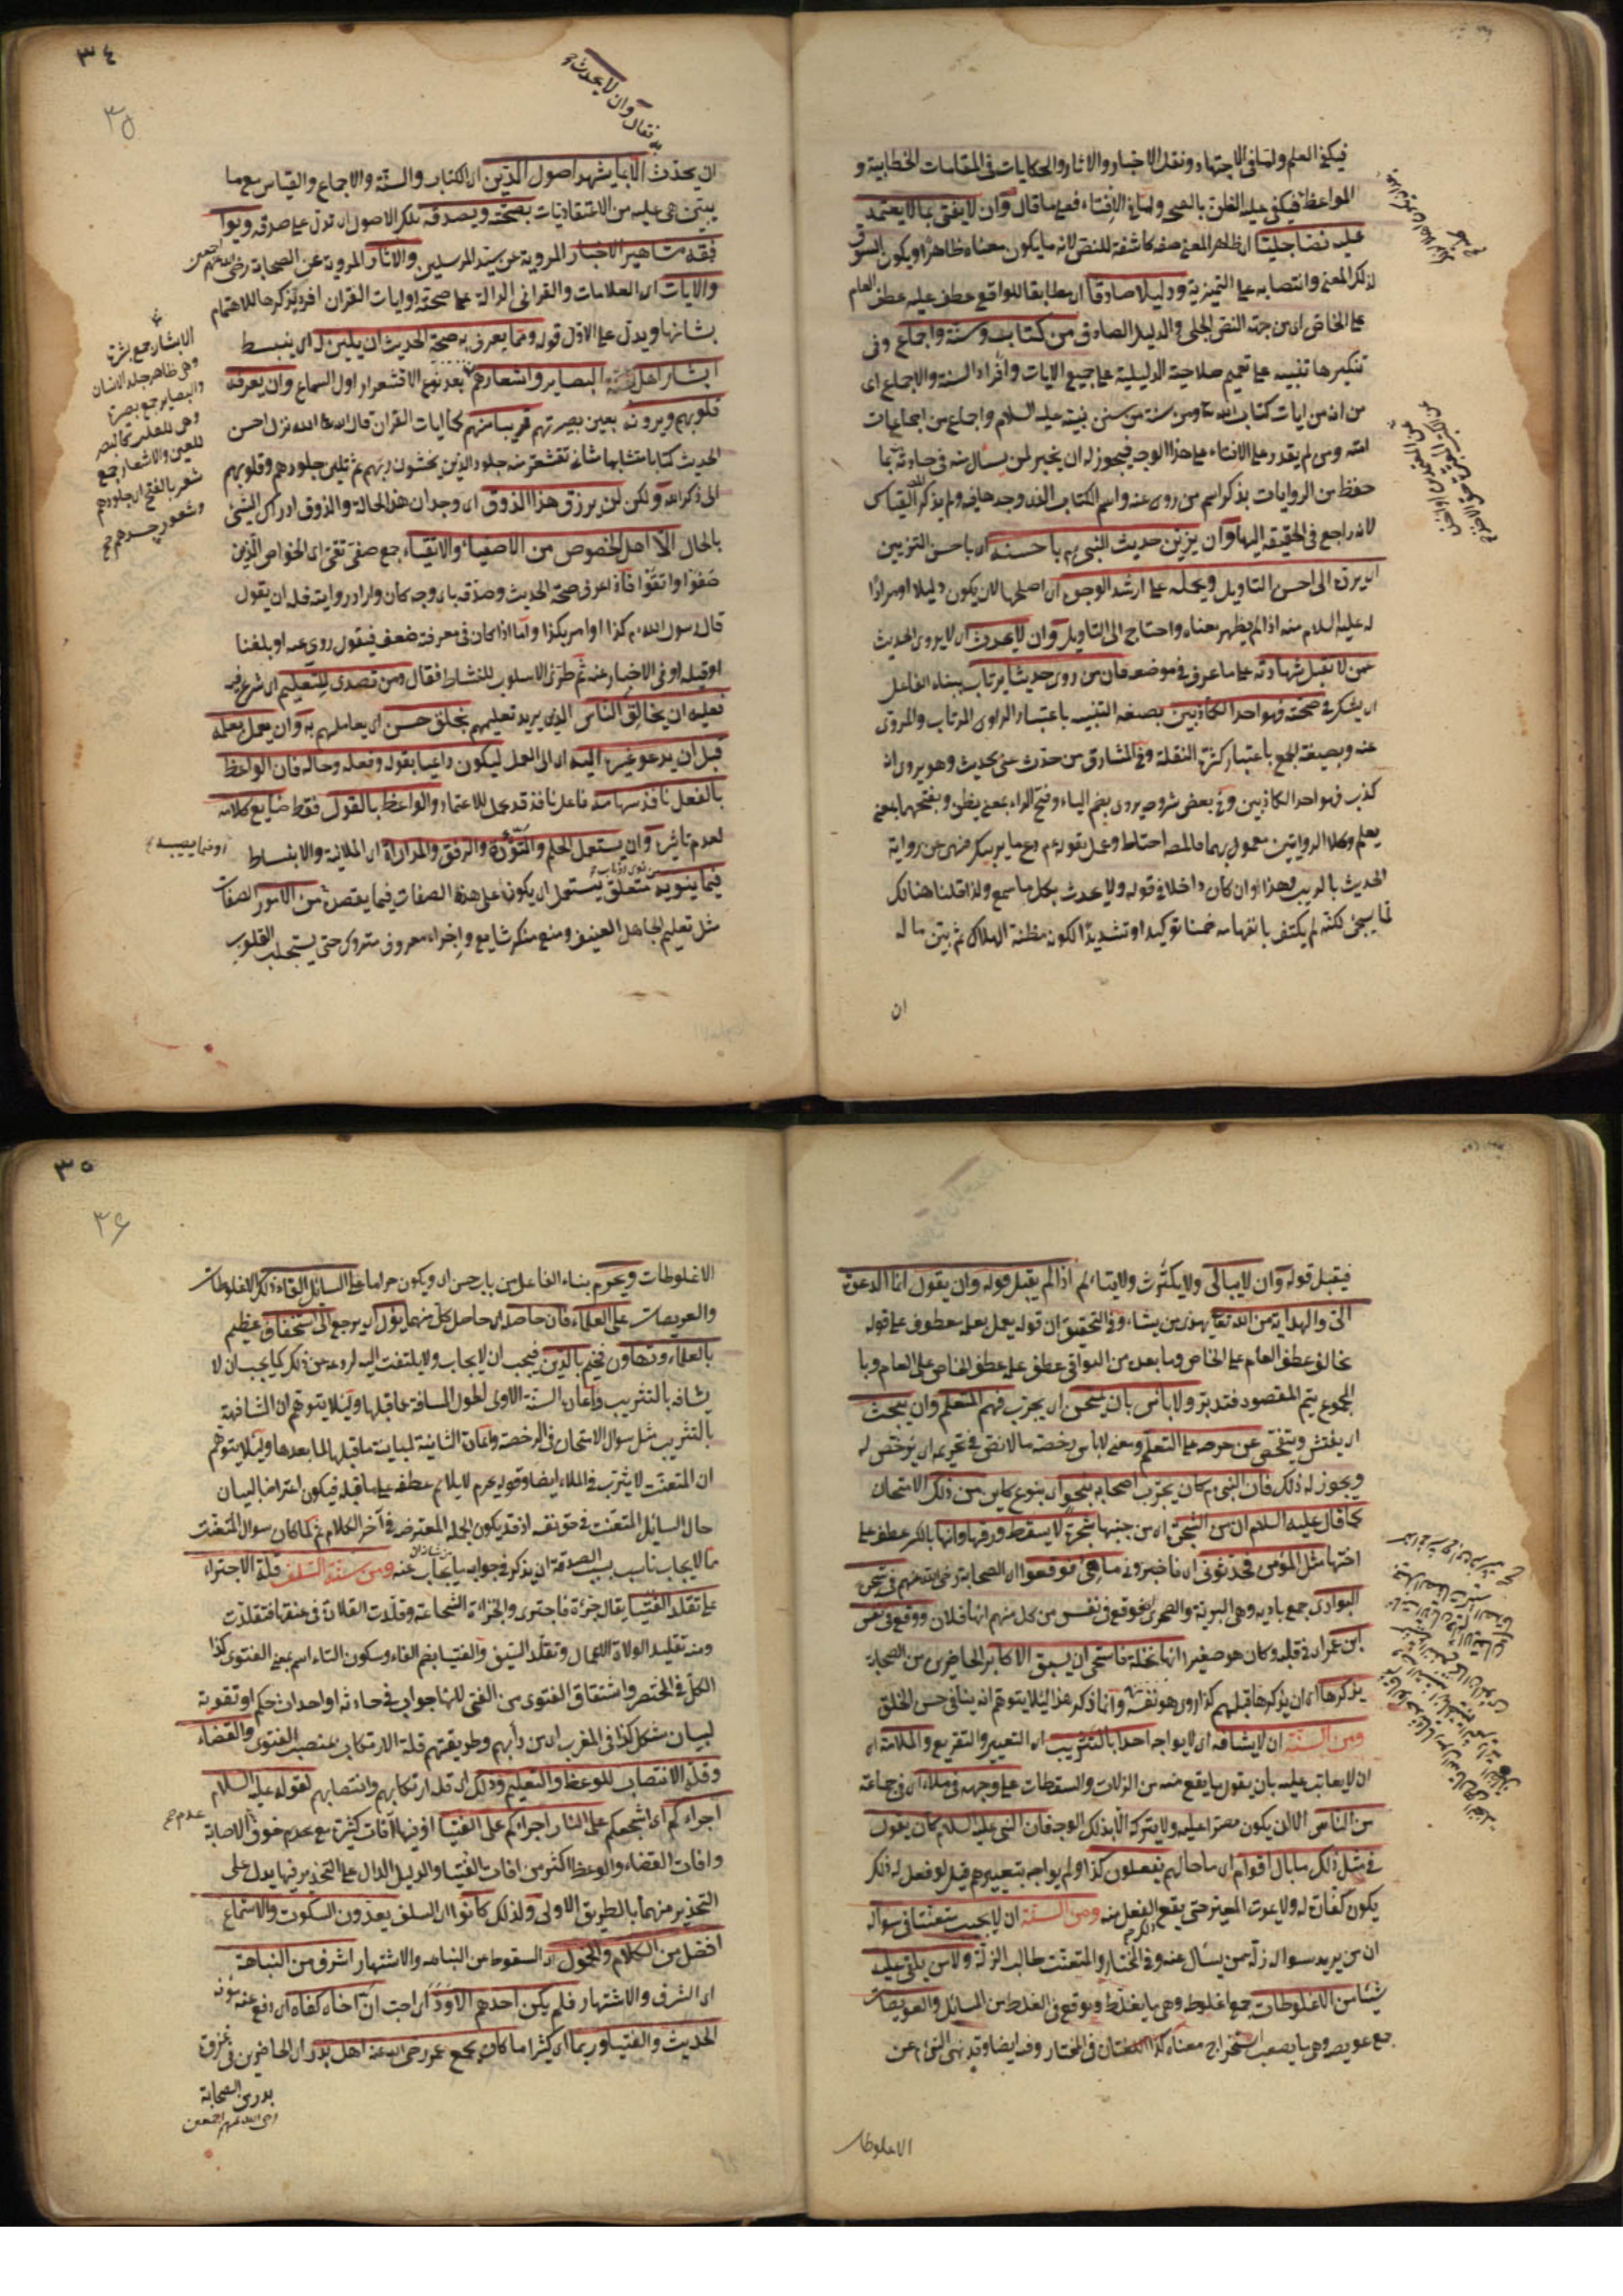 فيكفي العلم ولما في الاجتهاد ونقل الاخبار والاثار والحكايات في المقامات الخطابية و
المواعظ فيكفي عليه الظن بالصحة ولما في الافتاء فعلى ما قال وان لا يفتي بما لا يعتمد
عليه نصا جليا اي ظاهر المعنى صفة كاشفة للنص لانه ما يكون معناه ظاهرا ويكون السوق
لذلك المعنى وانتصابه على التميزية ودليلا صادقا اي مطابقا للواقع عطف عليه عطف العام
على الخاص اي من جهة النص الجلي والدليل الصادق من كتاب وسنة واجماع وفي
تنكيرها تنبيه على تعميم صلاحية الدليلية على جميع الايات وافراد السنة والاجماع اي
من اية من ايات كتاب الله تع ومن سنة من سنن نبيه عليه السلام واجماع من اجماعات
امته ومن لم يقدر على الافتاء على هذا الوجه فيجوز له ان يخبر لمن يسأل منه في حادثة بما
حفظ من الروايات بذكر اسم من روى عنه واسم الكتاب الذي وجدها فيه ولم يذكر القياس
لانه راجع في الحقيقة اليها وان يزين حديث النبي عم باحسنه اي باحسن التزيين
اي يرده الى احسن التاويل ويحمله على ارشد الوجوه اي اصلحها لان يكون دليلا او مرادا
له عليه السلام منه اذا لم يظهر معناه واحتاج الى التاويل وان لا يحدث اي لا يروي الحديث
عمن لا تقبل شهادته على ما عرف في موضعه فان من روى حديثا يرتاب ببناء الفاعل
اي يشك في صحته فهو احد الكاذبين بصيغة التثنية باعتبار الراوي المرتاب والمروي
عنه وبصيغة الجمع باعتبار كثرة النقلة وفي المشارق من حدث عني بحديث وهو يرى انه
كذب فهو احد الكاذبين وفي بعض شروحه يروى بضم الياء وفتح الراء بمعنى يظن وبفتحها بمعنى
يعلم وكلا الروايتين معمول بهما فالمصـ احتاط وعمل بقوله عم دع ما يريبك فنهى عن رواية
الحديث بالريب وهذا وان كان داخلا في قوله ولا يحدث بكل ما سمع ولذا قلنا هنالك
لما سيجيء لكنه لم يكتف بانفهامه ضمنا توكيدا وتشديدا لكونه مظنة الهلاك ثم بين ما له
ان
٣٤
٣٥
فقال وان لا يحدث
ان يحدث الا بما يشهد اصول الدين اي الكتاب والسنة والاجماع والقياس مع ما
يبتني هي عليه من الاعتقاديات بصحته ويصدقه تلك الاصول اي تدل على صدقه ويوافقه
مشاهير الاخبار المروية عن سيد المرسلين والاثار المروية عن الصحابة رضي الله عنهم اجمعين
والايات اي العلامات والقرائن الدالة على صحته او ايات القران افرد بذكرها للاهتمام
بشانها ويدل على الاول قوله ومما يعرف به صحة الحديث ان يلين له اي ينبسط
ابشار اهل البصاير واشعارهم بعد نوع الاقشعرار اول السماع وان يعرفه
قلوبهم ويرونه بعين بصيرتهم قريبا منهم كما ايات القران قال الله تع الله نزل احسن
الحديث كتابا متشابها مثاني تقشعر منه جلود الذين يخشون ربهم ثم تلين جلودهم وقلوبهم
الى ذكر الله ولكن لن يرزق هذا الذوق اي وجدان هذا الحالة والذوق ادراك الشيء
بالحال الا اهل الخصوص من الاصفياء والاتقياء جمع صفي تقي اي الخواص الذين
صفوا واتقوا فاذا عرف صحة الحديث وصدقه باي وجه كان واراد روايته فله ان يقول
قال رسول الله عم كذا او امر بكذا واما اذا كان في معرفته ضعف فيقول روي عنه او بلغنا
او قيل او في الاخبار عنه ثم طرى الاسلوب للنشاط فقال ومن تصدى للتعليم اي شرع فيه
فعليه ان يخالق الناس الذي يريد تعليمهم بخلق حسن اي يعاملهم به وان يعمل بعلمه
قبل ان يدعو غيره اليه اي الى العمل ليكون داعيا بقوله وفعله وحاله فان الواعظ
بالفعل نافذ سهامه فاعل نافذ قدم للاعتماد والواعظ بالقول فقط ضايع كلامه
لعدم تاثيره وان يستعمل الحلم والتؤدة والرفق والمداراة اي الملاينة والانبساط
فيما ينوبه متعلق يستعمل اي يكون على هذه الصفات فيما يقصده من الامور الصفات
مثل تعليم الجاهل العنيف ومنع منكر شايع واجراء معروف متروك حتى يستجلب القلوب
الابشار جمع بشرة
وهي ظاهر جلد الانسان
والبصاير جمع بصيرة
وهي للقلب كالبصر
للعين والاشعار جمع
شعر بالفتح اي جلودهم
وشعور جسدهم صح
او فيما يصيبه
فيقبل قوله وان لا يبالي ولا يكترث ولا يتالم اذا لم يقبل قوله وان يقول انما الدعوة
الي والهداية من الله تعالى يهدي من يشاء وفي التحقيق ان قوله يعمل بعلمه معطوف على قوله
يخالق عطف العام على الخاص وما بعده من البواقي عطف عليه عطف الخاص على العام وبا
لمجموع يتم المقصود فتدبر ولا باس بان يمتحن اي يجرب فهم المتعلم وان يبحث
اي يفتش ويتفحص عن حرصه على التعلم ومعنى لا باس رخصة ما لا نص في تحريمه اي يرخص له
ويجوز له ذلك فان النبي عم كان يجرب اصحابه بنحو اي بنوع كاين من ذلك الامتحان
كما قال عليه السلام ان من الشجر اي من جنسها شجرة لا يسقط ورقها وانها بالكسر عطف على
اختها مثل المؤمن فحدثوني اي فاخبروني ما هي فوقعوا اي الصحابة رضي الله عنهم في شجر
البوادي جمع بادية وهي البرية والصحرى فوقع في نفس من كل منهم انها فلان ووقع في نفس
ابن عمر اي في قلبه وكان هو صغيرا انها نخلة فاستحى ان يسبق الاكابر الحاضرين من الصحابة
يذكرها اي ان يذكرها قبلهم كذا روى هو نفسه وانما ذكر هذا لئلا يتوهم انه ينافي حسن الخلق
ومن السنة ان لا يشافه اي لا يواجه احدا بالتثريب اي التعيير والتقريع والملامة اي
ان لا يعاتب عليه بان يقول ما يقع منه من الزلات والسقطات على وجهه في ملاء اي في جماعة
من الناس الا لان يكون مصرا عليه ولا يتركه الا بذلك الوجه فان النبي عليه السلام كان يقول
في مثل ذلك ما بال اقوام اي ما حالهم يفعلون كذا ولم يواجه بتعييرهم قيل لو فعل له ذلك
يكون كفارة له ولا يموت المعير حتى يقع الفعل منه ومن السنة ان لا يجيب متعنتا في سواله
اي من يريد بسواله زلة من يسال عنه وفي المختار والمتعنت طالب الزلة ولا من يلقي عليه
شيئا من الاغلوطات جمع اغلوطة وهي ما يغلط ويوقع في الغلط من المسائل والعويصات
جمع عويصة وهي ما يصعب استخراج معناه كذا اللغتان في المختار وفيه ايضا وقد نهى النبي عم عن
الاغلوطات
٣٥
٣٦
الاغلوطات ويحرم بناء الفاعل من باب حسن اي ويكون حراما على السائل القاء ذلك الاغلوطات
والعويصات على العلماء فان حاصله اي حاصل كل منهما يؤل اي يرجع الى استخفاف عظيم
بالعلماء وتهاون فخيم بالدين فيجب ان لا يجاب ولا يلتفت اليه لردعه عن ذلك كما يجب ان لا
يشافه بالتثريب واعاد السنة الاولى لطول المسافة عما قبلها ولئلا يتوهم ان المشافهة
بالتثريب مثل سوال الامتحان في الرخصة واعاد الثانية لمباينة ما قبلها لما بعدها ولئلا يتوهم
ان المتعنت لا يثرب في الملاء ايضا وقوله يحرم لا يلايم عطفه على ما قبله فيكون اعتراضا لبيان
حال السائل المتعنت في حق نفسه اذ قد يكون الجملة المعترضة في آخر الكلام ثم لما كان سوال المتعنت
مما لا يجاب ناسب بسبب الصدقة ان يذكر في جوابه ما يجاب عنه ومن سنة السلف قلة الاجتراء
على تقلد الفتيا يقال جرء فاجترى والجراءة الشجاعة وقلدت القلادة في عنقها فتقلدت
ومنه تقليد الولاة الاعمال وتقلد السيف والفتيا بضم الفاء وسكون التاء اسم بمعنى الفتوى كذا
الكل في المختصر واشتقاق الفتوى من الفتى لانها جواب في حادثة او احداث حكم او تقوية
لبيان مشكل كذا في المغرب اي من دأبهم وطريقتهم قلة الارتكاب بمنصب الفتوى والقضاء
وقلة الانتصاب للوعظ والتعليم وذلك اي قلة ارتكابهم وانتصابهم لقوله عليه السلام
اجراءكم اي اشجعكم على النار اجراءكم على الفتيا اذ فيها آفات كثيرة مع عدم خوف الاصابة
وافات القضاء والوعظ اكثر من افات الفتيا والدليل الدال على التحذير فيها يدل على
التحذير منهما بالطريق الاولى ولذلك كانوا اي السلف يعدون السكوت والاستماع
افضل من الكلام والخمول اي السقوط من النباهة والاشتهار اشرف من النباهة
اي الشرف والاشتهار فلم يكن احدهم الا ود اي احب ان اخاه كفاه اي دفع عنه مؤنة
الحديث والفتيا وربما اي كثيرا ما كان يجمع عمر رضي الله عنه اهل بدر اي الحاضرين في غزوة
بدر من الصحابة
رضي الله عنهم اجمعين